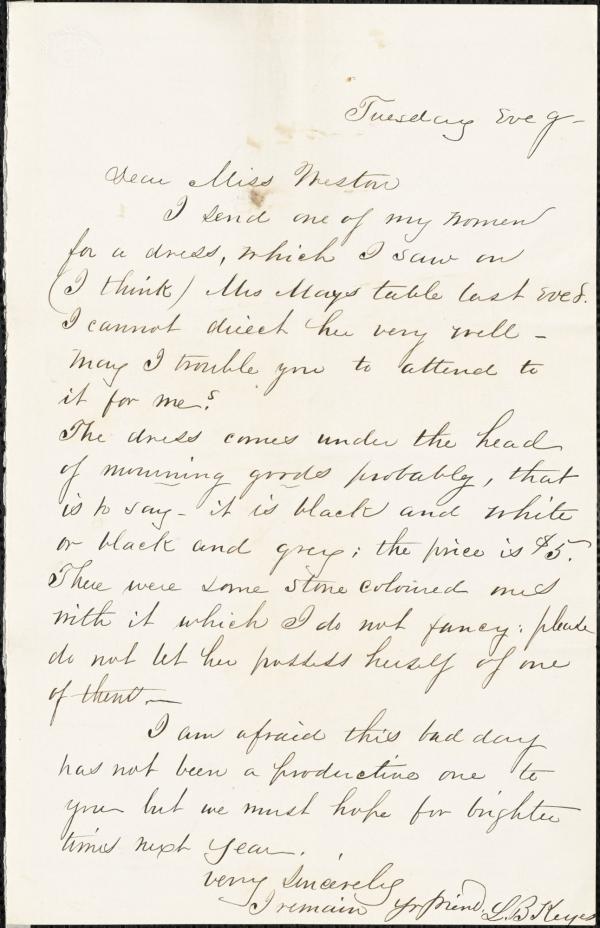 Tuesday Eveg-
Dear Miss Weston
I send one of my women
for a dress, which I saw on
(I think) Mrs Mays table last Eveg.
I cannot direct her very well -
May I trouble you to attend to
it for me?
The dress comes under the head
of mourning goods probably, that
is to say - it is black and white
or black and grey; the price is $5.
There were some stone coloured ones
with it which I do not fancy: please
do not let her possess herself of one
of them.-
I am afraid this bad day
has not been a productive one to
you but we must hope for brighter
times next year.
Very sincerely
I remain yr friend. L.B Keyes